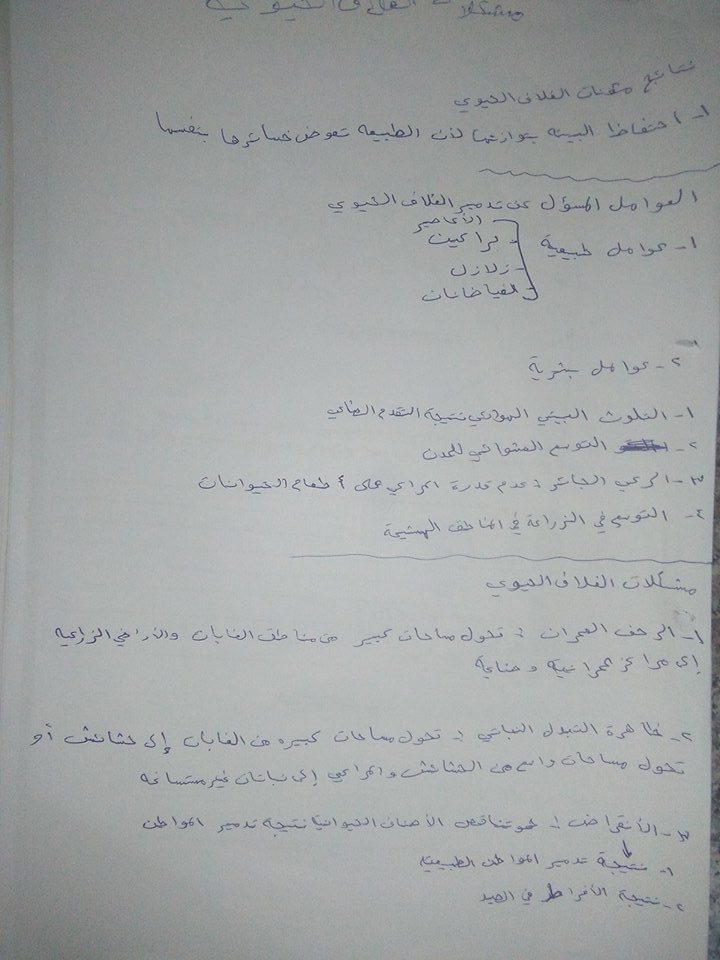 مشكلات الغلاف الحيوي
نتائج مكونات الغلاف الحيوي
١- احتفاظ البيئه بتوازنها لأن الطبيعه تعوض خسائرها بنفسها
العوامل المسؤل عن تدمير الغلاف الحيوي
١- عوامل طبيعية
الأعاصير
براكين
زلازل
الفياضانات
٢- عوامل بشرية
١- التلوث البيئي الهوائي نتيجة التقدم الصناعي
٢- التوسع العشوائي للمدن
٣- الرعي الجائر : عدم قدرة المراعي على إطعام الحيوانات
٤- التوسع في الزراعة في المناطق الهشيمة
مشكلات الغلاف الحيوي
١- الزحف العمران : تحول مساحات كبير من مناطق الغابات والأراضي الزراعيه
إلى مراكز عمرانيه وصناعية
٢- ظاهرة التبدل النباتي : تحول مساحات كبيره من الغابات إلى حشائش أو
تحول مساحات واسع من الحشائش والمراعي إلى نباتات غير مستساغه
٣- الأنقراض : هو تناقص الأصناف الحيوانيا نتيجة تدمير المواطن
١- نتيجة تدمير المواطن الطبيعيه
٢- نتيجة الأفراط في الصيد